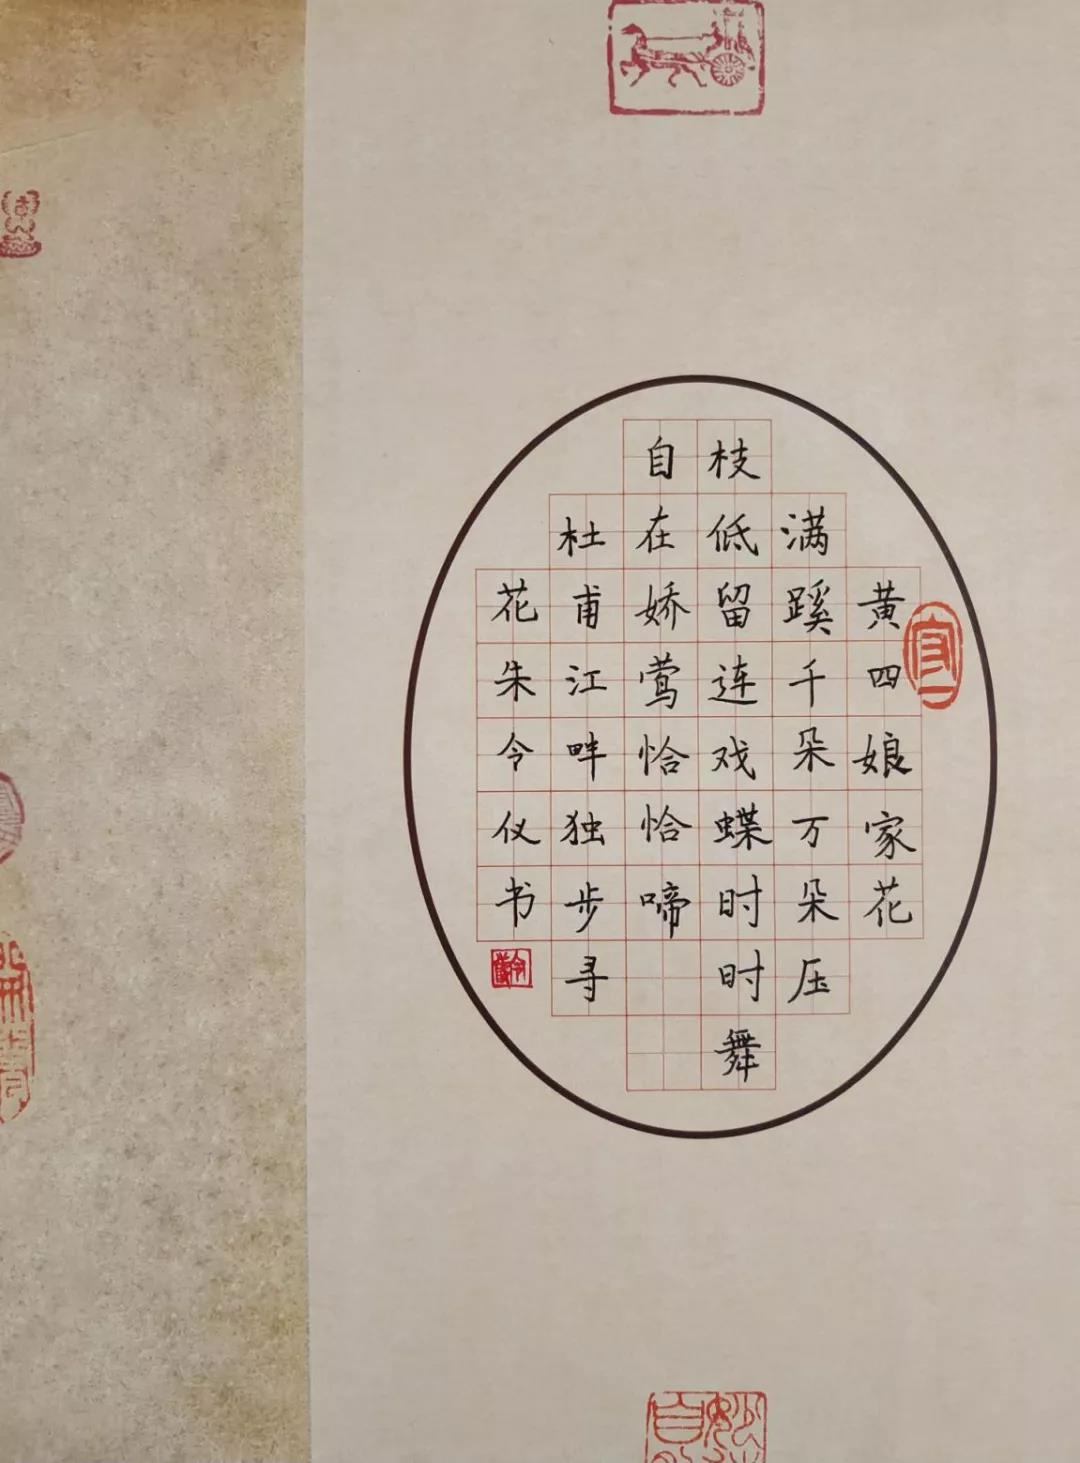 黄四娘家花
满蹊千朵万朵压
枝低留连戏蝶时时舞
自在娇莺恰恰啼
杜甫江畔独步寻
花朱令仪书